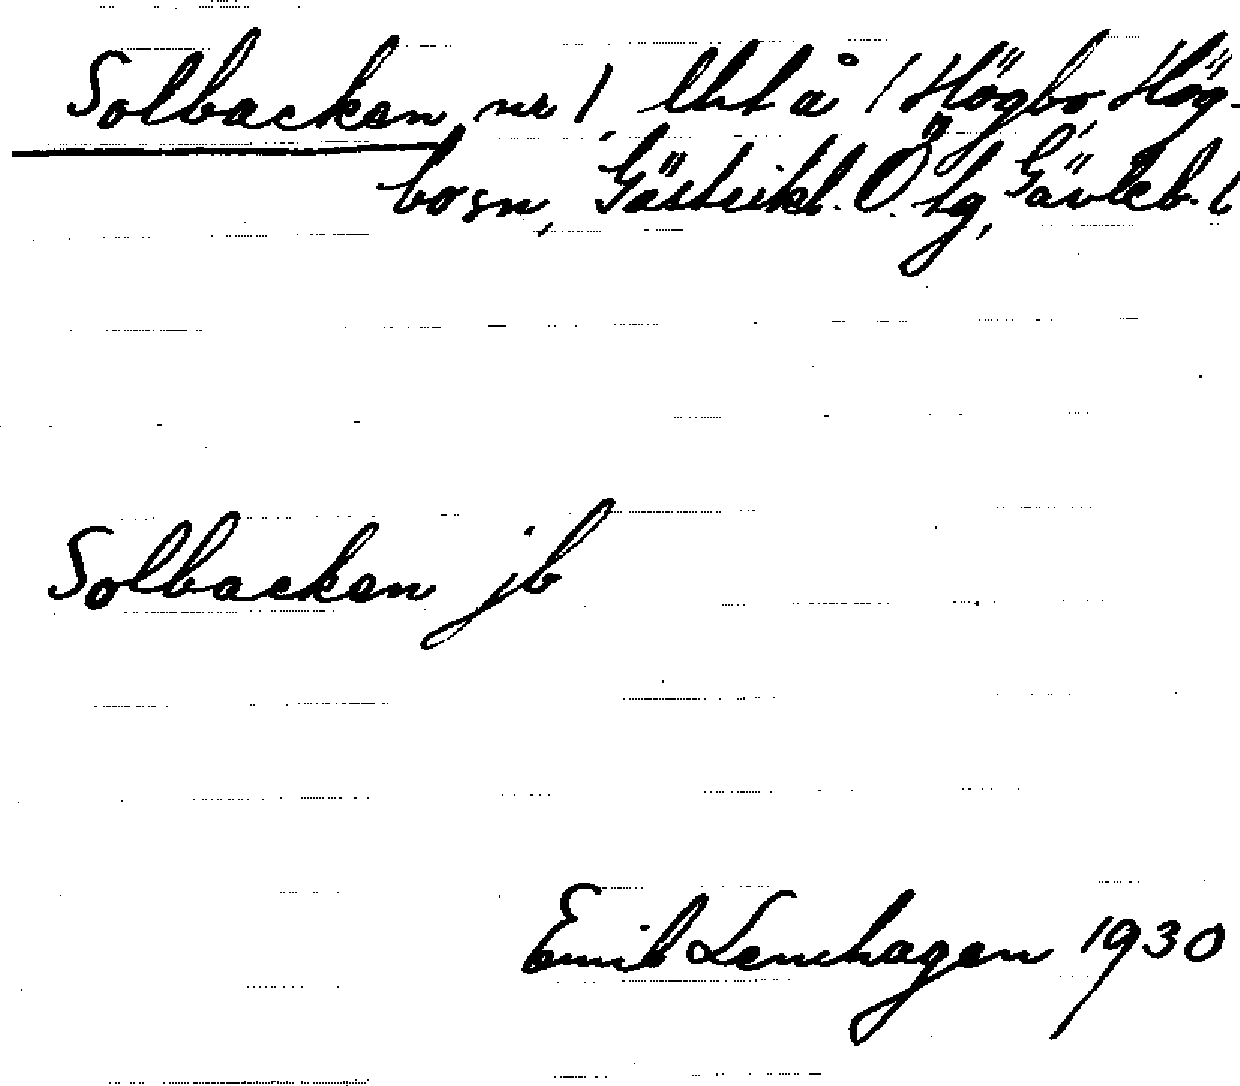 Solbacken nr 1 lht å 1 Högbo, Hög-
bo sn, Gästrikl. Ö. tg, Gävleb. l
Solbacken jb
Emil Lenhagen 1930